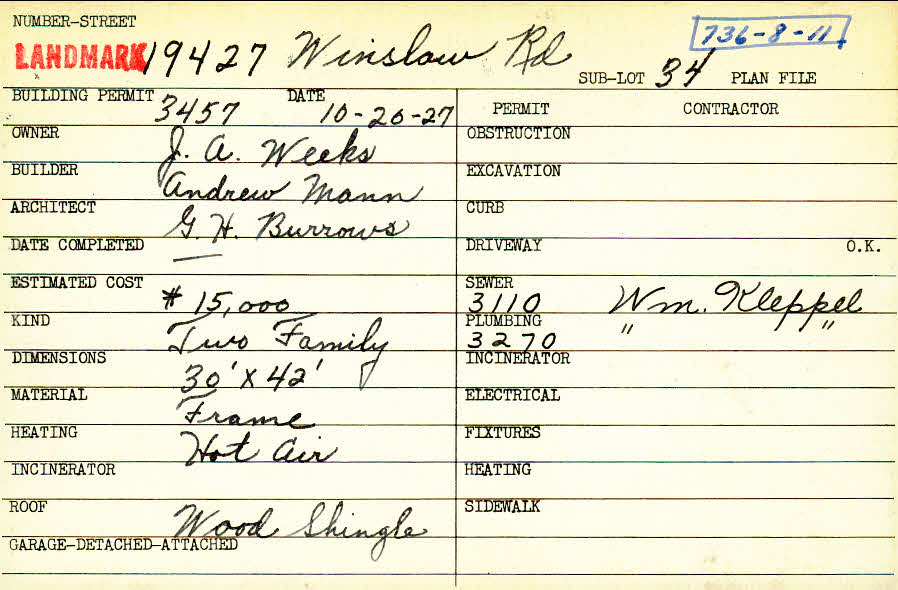 NUMBER-STREET
736-8-11
LANDMARK 19427 Winslow Rd
SUB-LOT 34 PLAN FILE
BUILDING PERMIT 3457 DATE 10-20-27
PERMIT CONTRACTOR
OWNER J. A. Weeks
OBSTRUCTION
BUILDER Andrew Mann
EXCAVATION
ARCHITECT G. H. Burrows
CURB
DATE COMPLETED —
DRIVEWAY O.K.
ESTIMATED COST $ 15,000
SEWER 3110 Wm. Kleppel
KIND Two Family
PLUMBING 3270 " "
DIMENSIONS 30' X 42'
INCINERATOR
MATERIAL Frame
ELECTRICAL
HEATING Hot Air
FIXTURES
INCINERATOR
HEATING
ROOF Wood Shingle
SIDEWALK
GARAGE-DETACHED-ATTACHED